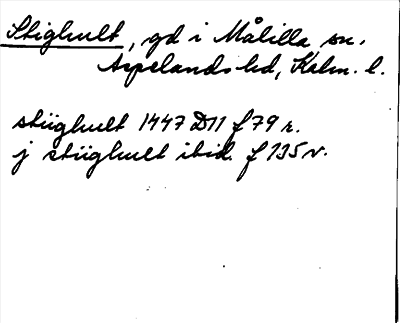 Stighult, gd i Målilla sn.
Aspelands hd, Kalm. l.
stiighult 1447 D11 f 79 r.
j stiighult ibid. f 135 v.